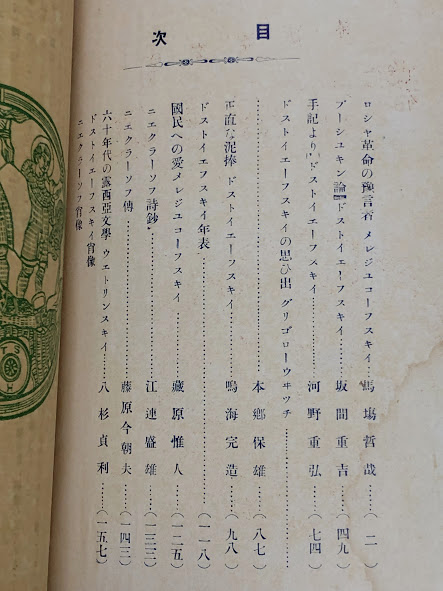 目次
ロシャ革命の豫言者 メレジユコーフスキイ 馬場哲哉…(二)
プーシユキン論 ドストイエーフスキイ………坂間重吉…(四九)
手記より ドストイエーフスキイ………河野重弘…(七四)
ドストイエーフスキイの思ひ出 グリゴローウヰツチ………
………本郷保雄…(八七)
正直な泥捧 ドストイエーフスキイ………鳴海完造…(九八)
ドストイエフスキイ年表………(一一八)
國民への愛 メレジユコーフスキイ………藏原惟人…(一二五)
ニエクラーソフ詩鈔………江連盛雄…(一三三)
ニエクラーソフ傳………藤原今朝夫…(一四三)
六十年代の露西亞文學 ウエトリンスキイ……八杉貞利…(一五七)
ドストイエーフスキイ肖像
ニエクラーソフ肖像